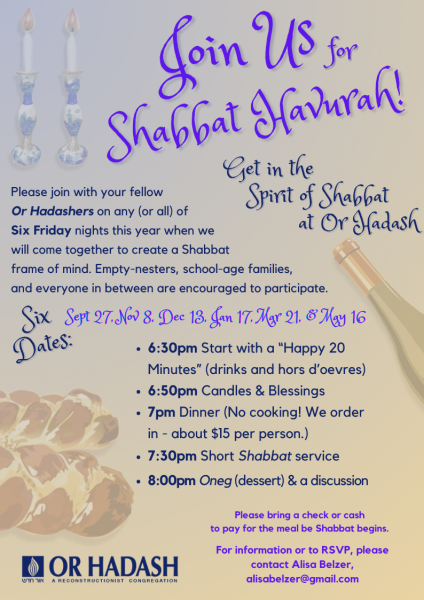 Join Us for
Shabbat Havurah!
Get in the
Spirit of Shabbat
at Or Hadash
Please join with your fellow
Or Hadashers on any (or all) of
Six Friday nights this year when we
will come together to create a Shabbat
frame of mind. Empty-nesters, school-age families,
and everyone in between are encouraged to participate.
Six
Dates:
Sept 27, Nov 8, Dec 13, Jan 17, Mar 21, & May 16
• 6:30pm Start with a “Happy 20
Minutes” (drinks and hors d’oevres)
• 6:50pm Candles & Blessings
• 7pm Dinner (No cooking! We order
in - about $15 per person.)
• 7:30pm Short Shabbat service
• 8:00pm Oneg (dessert) & a discussion
Please bring a check or cash
to pay for the meal be Shabbat begins.
For information or to RSVP, please
contact Alisa Belzer,
alisabelzer@gmail.com
OR HADASH
A RECONSTRUCTIONIST CONGREGATION
אור חדש